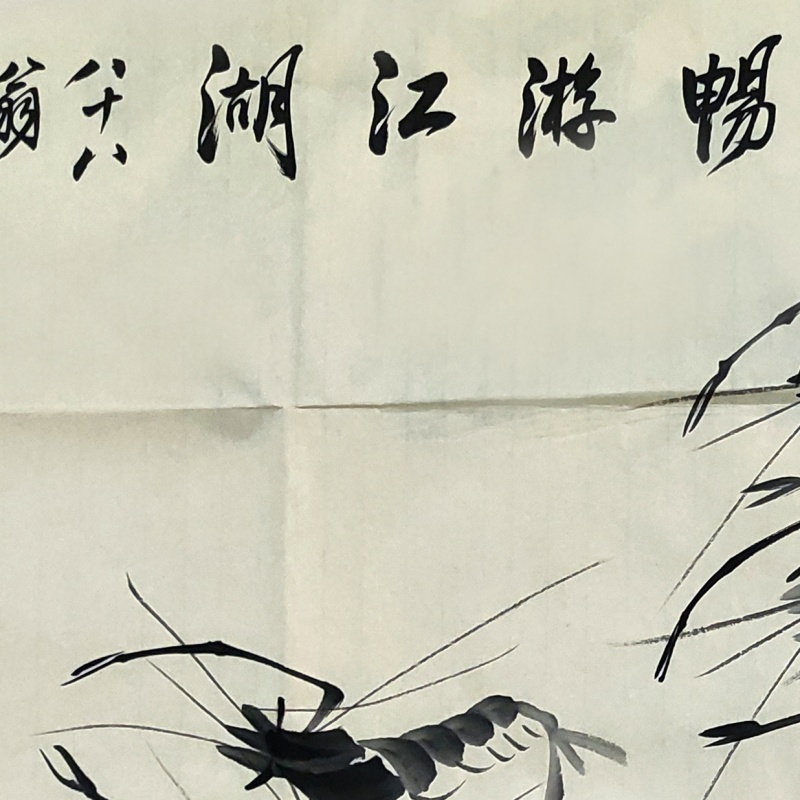 暢游江湖
八十八
翁